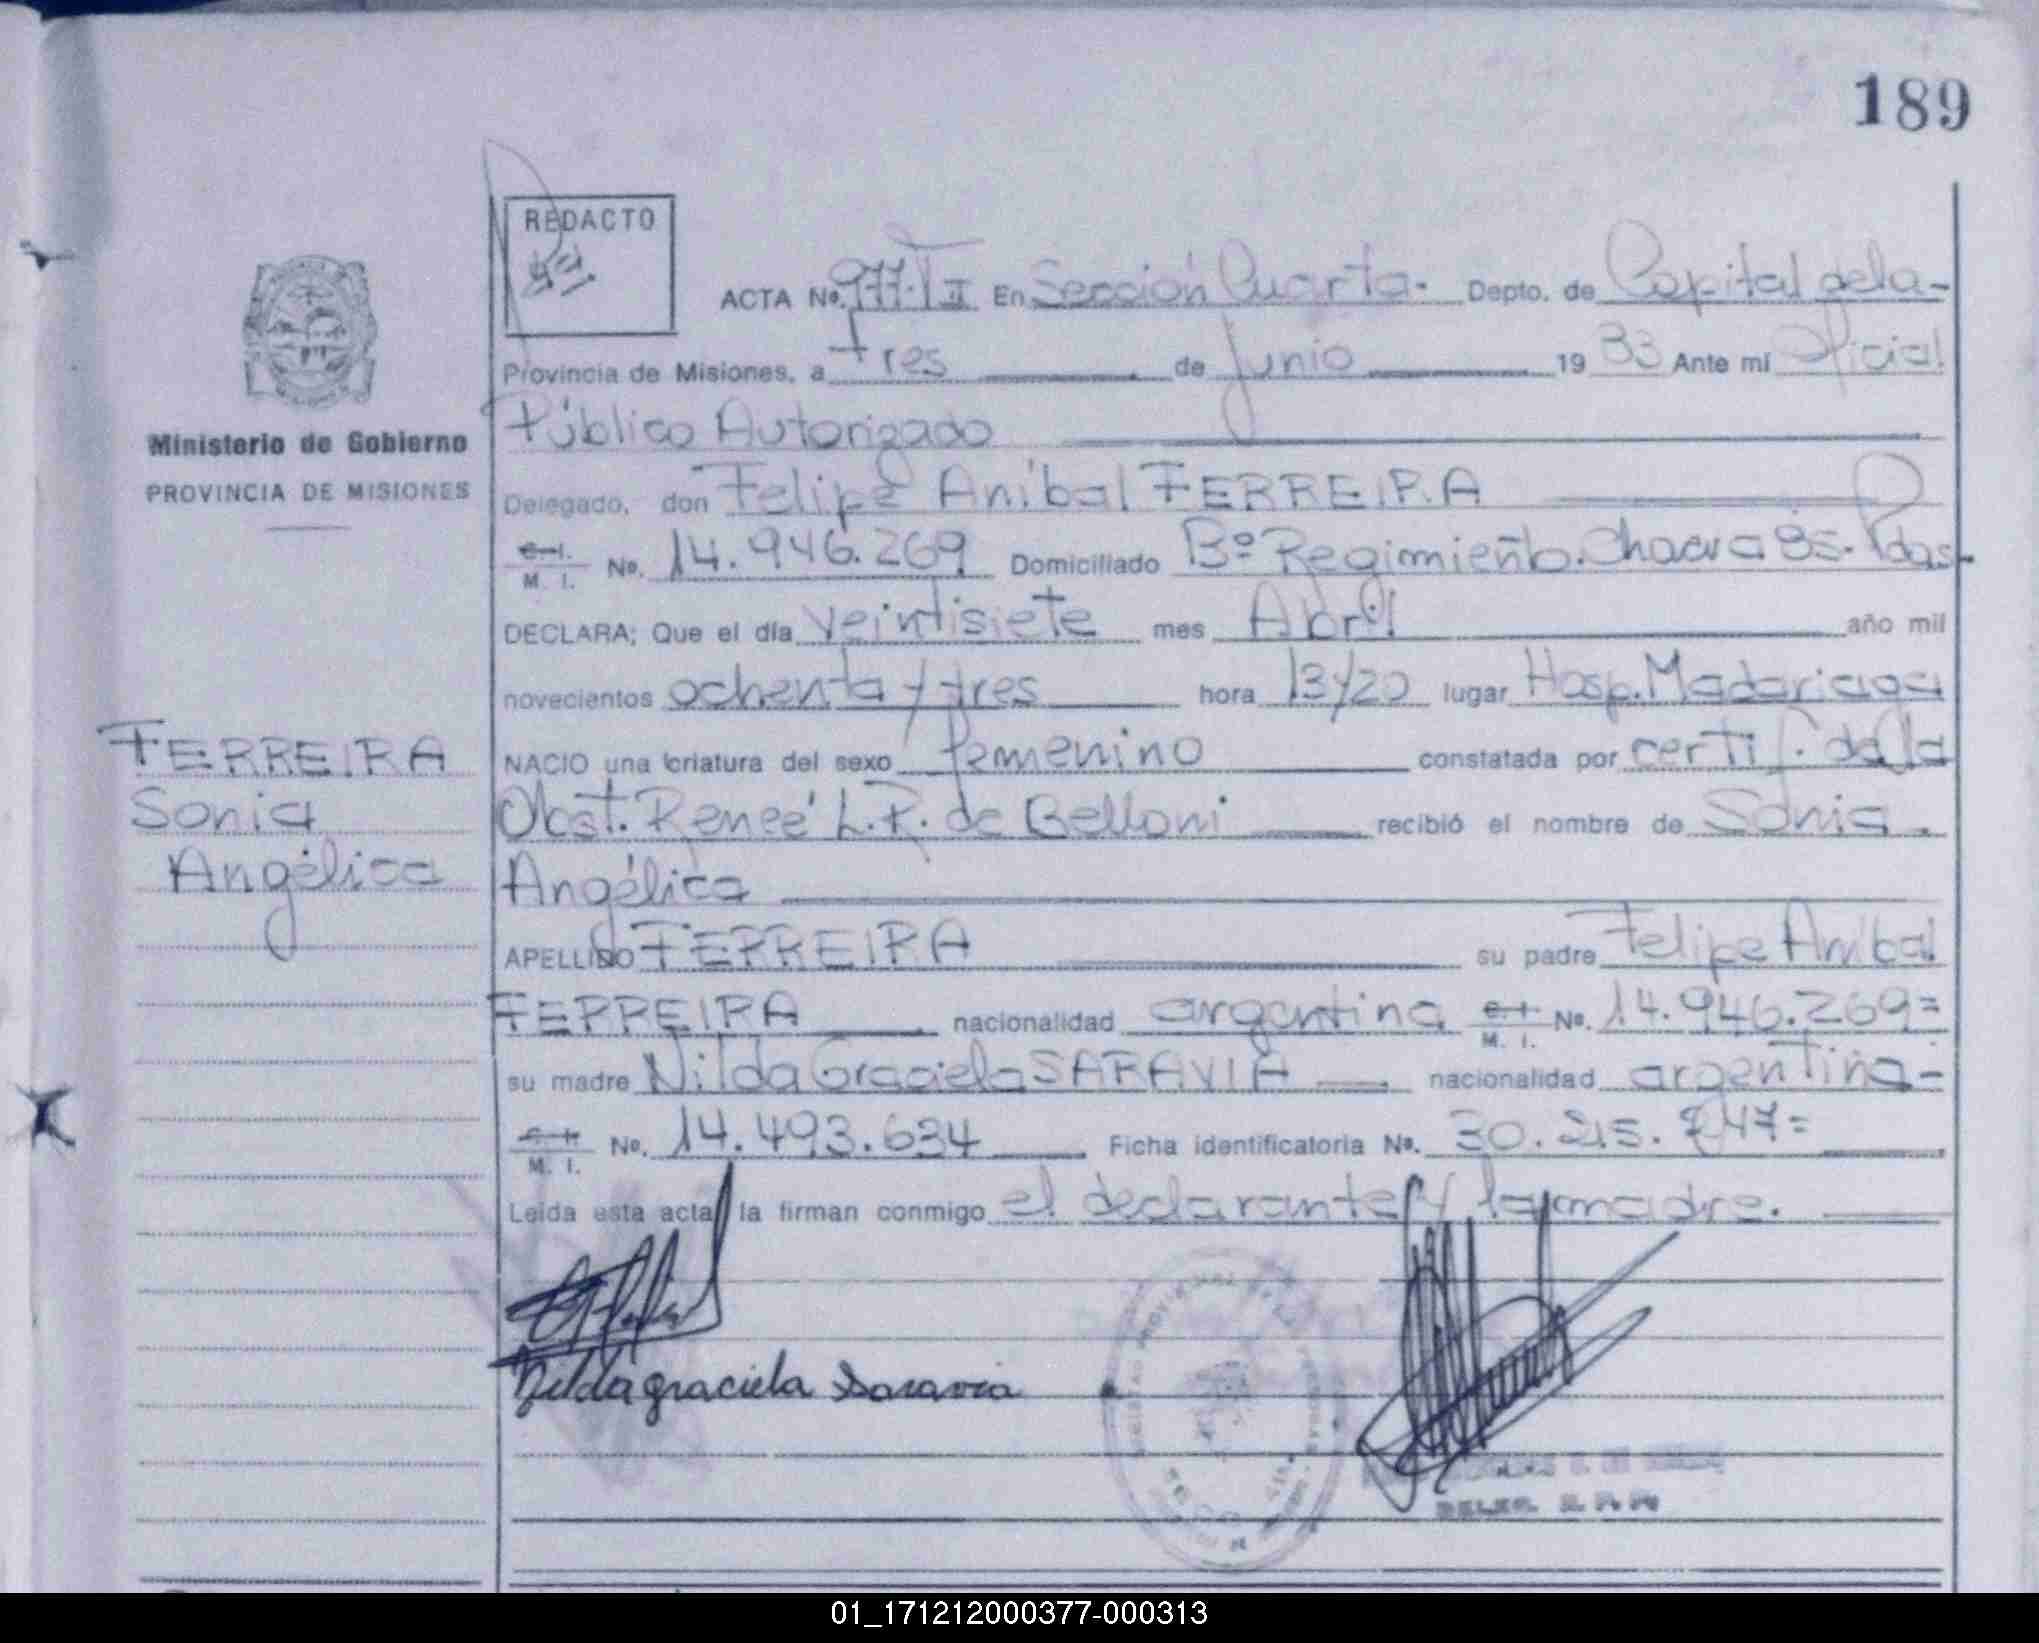 189
REDACTO
ACTA No. 977-T II En Sección Cuarta. Depto. de Capital de la-
Provincia de Misiones, a tres de Junio 19 83 Ante mí Oficial
Público Autorizado
Ministerio de Gobierno
PROVINCIA DE MISIONES
Delegado, don Felipe Aníbal FERREIRA
C. I.
M. I. No. 14.946.269 Domiciliado Bº Regimiento. Chacra 85. Pdas-
DECLARA; Que el día veintisiete mes Abril año mil
novecientos ochenta y tres hora 13y20 lugar Hosp. Madariaga
FERREIRA
Sonia
Angélica
NACIO una criatura del sexo femenino constatada por certif. de la
Obst. Reneé L.R. de Belloni recibió el nombre de Sonia
Angélica
APELLIDO FERREIRA su padre Felipe Aníbal
FERREIRA nacionalidad argentina C. I. M. I. No. 14.946.269=
su madre Nilda Graciela SARAVIA nacionalidad argentina-
C. I.
M. I. No. 14.493.634 Ficha identificatoria No. 30.215.747=
Leída esta acta, la firman conmigo el declarante y la madre.
Nilda graciela Saravia
DELEG. R. P. P.
01_171212000377-000313